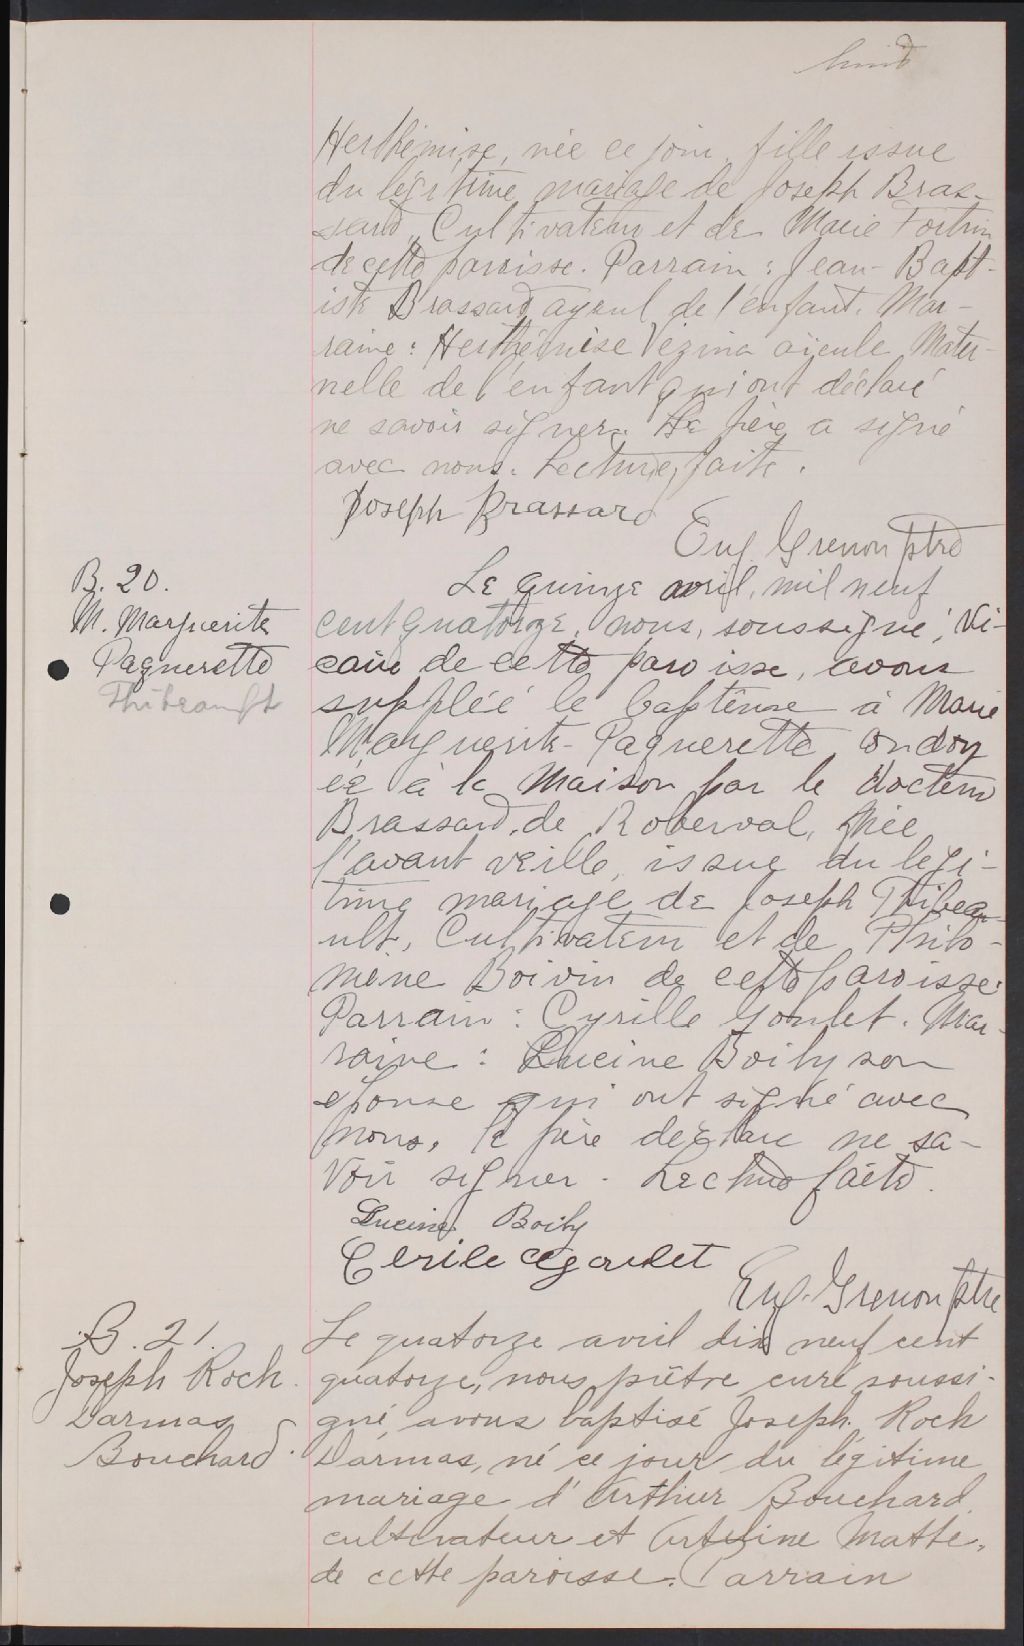 huit
Herthémise, née ce jour, fille issue
du légitime mariage de Joseph Bras-
sard, Cultivateur et de Marie Fortin
de cette paroisse. Parrain : Jean-Bapt-
iste Brassard ayeul de l'enfant. Mar-
raine : Herthémise Vézina aïeule Mater-
nelle de l'enfant qui ont déclaré
ne savoir signer. Le père a signé
avec nous. Lecture faite.
Joseph Brassard
Eug. Grenon ptre
B. 20.
M. Marguerite
Paquerette
Thibeault
Le quinze avril, mil neuf
cent quatorze, nous, soussigné, Vi-
caire de cette paroisse, avons
suppléé le baptême à Marie
Marguerite-Paquerette, ondoy
ée à la Maison par le docteur
Brassard, de Roberval, née
l'avant veille, issue du légi-
time mariage de Joseph Thibea-
ult, Cultivateur et de Philo-
mène Boivin de cette paroisse.
Parrain : Cyrille Goulet. Mar-
raine : Lucine Boily son
épouse qui ont signé avec
nous, le père déclare ne sa-
voir signer. Lecture faite.
Lucine Boily
Cerile Goulet
Eug. Grenon ptre
B. 21.
Joseph Roch
Darmas
Bouchard.
Le quatorze avril dix neuf cent
quatorze, nous prêtre curé soussi-
gné avons baptisé Joseph. Roch
Darmas, né ce jour du légitime
mariage d'Arthur Bouchard
cultivateur et Matte,
de cette paroisse. Parrain